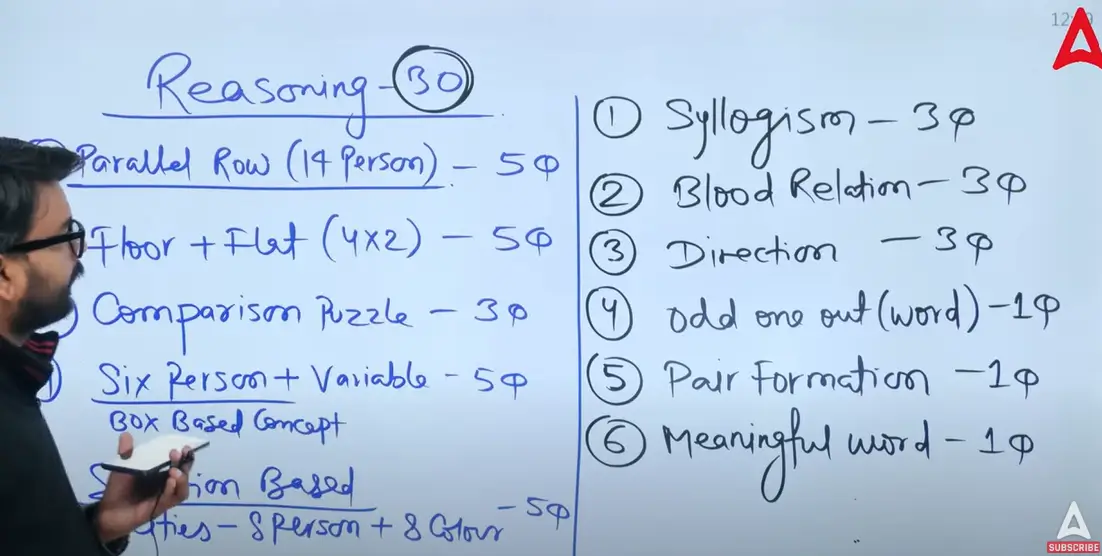 Reasoning - 30
Parallel Row (14 Person) - 5Φ
Floor + Flat (4x2) - 5Φ
Comparison Puzzle - 3Φ
Six Person + Variable - 5Φ
Box Based Concept
Based
- 8 Person + 8 Colour - 5Φ
① Syllogism - 3Φ
② Blood Relation - 3Φ
③ Direction - 3Φ
④ odd one out (word) - 1Φ
⑤ Pair Formation - 1Φ
⑥ Meaningful word - 1Φ
SUBSCRIBE